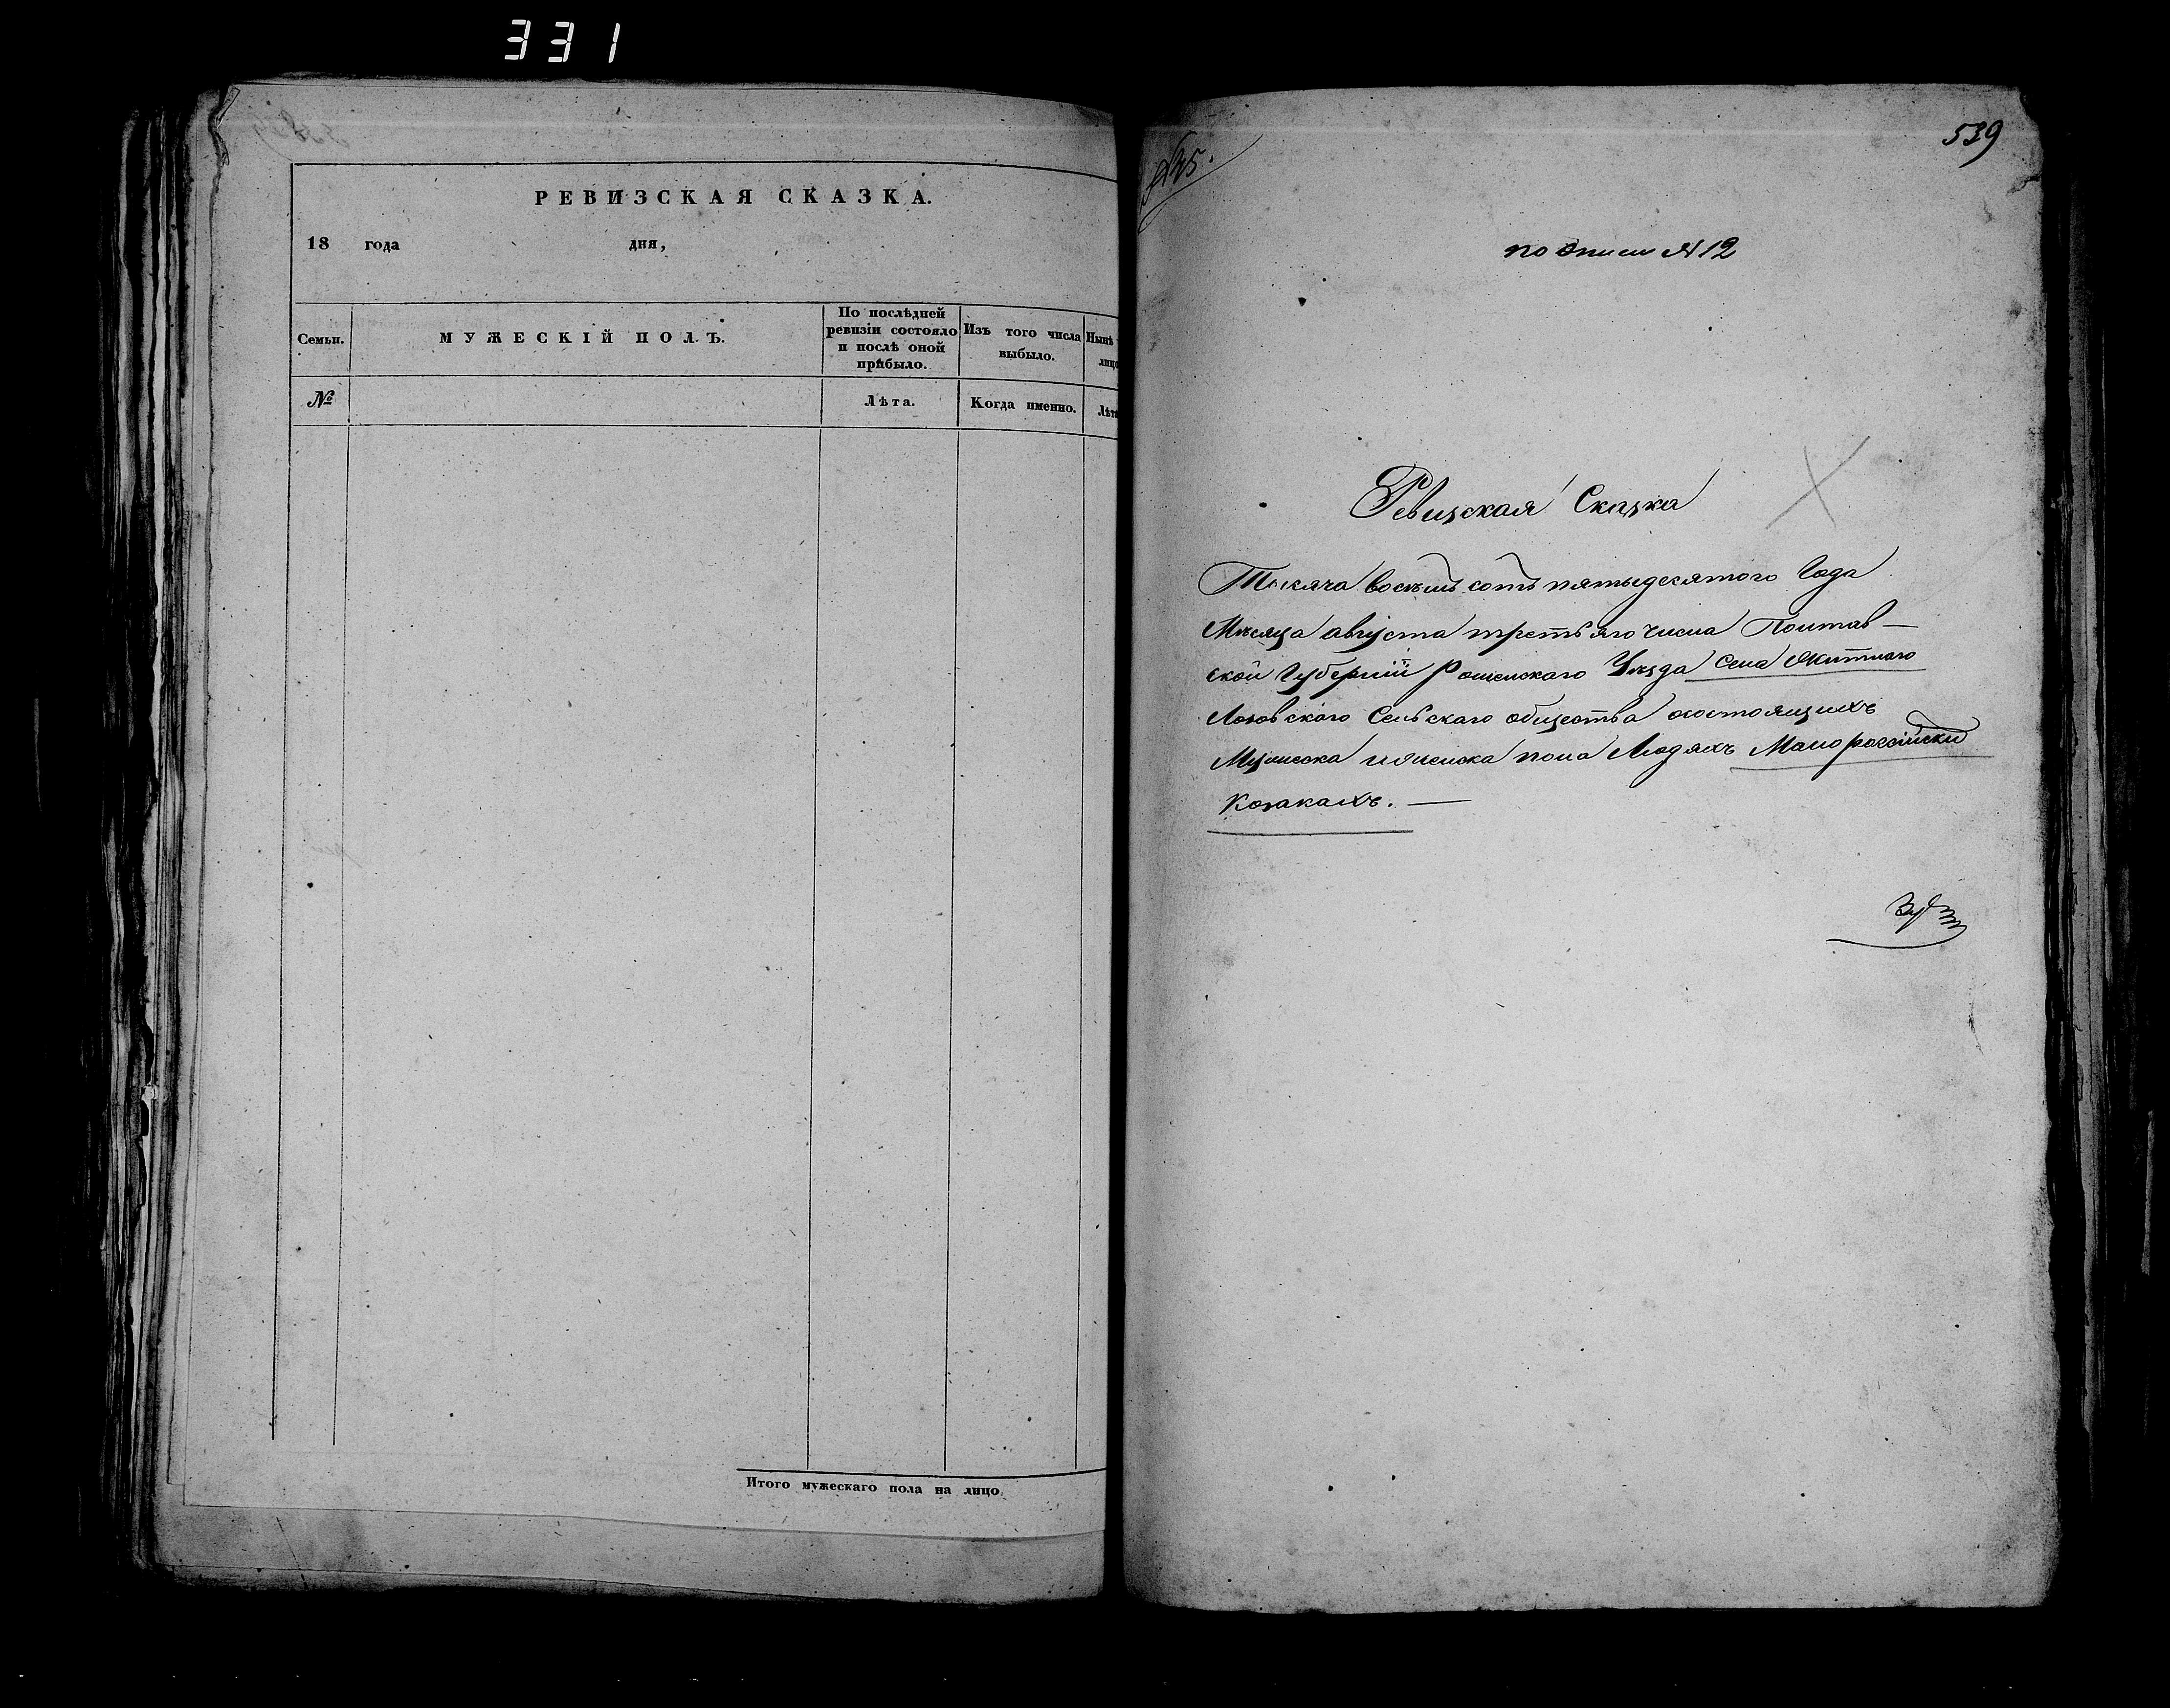 331
РЕВИЗСКАЯ СКАЗКА.
18 года дня,
Семьи.
МУЖЕСКІЙ ПОЛЪ.
По послѣдней ревизіи состояло и послѣ оной прибыло.
Изъ того числа выбыло.
Нынѣ
лицо
№
Лѣта.
Когда именно.
Лѣта
Итого мужескаго пола на лицо
539
№25.
по описи №12
Ревизская Сказка
Тысяча восемь сотъ пятьдесятого Года
Мѣсяца августа третьяго числа Полтав-
ской Губерніи Роменскаго Уѣзда Села
Лозовскаго Сельскаго общества состоящихъ
Мужеска и женска пола Людяхъ Малороссійски
Козакахъ. —